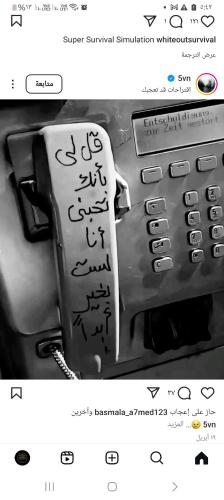 ٥:٤٢
١٢١
١
Super Survival Simulation whiteoutsurvival
عرض الترجمة
5vn
اقتراحات قد تعجبك
متابعة
Entschuldigung
zur Zeit gestört
قل لي
بأنك
تحبني
أنا
لست
بخير
أبداً
٣٧
حاز على إعجاب basmala_a7med123 وآخرين
5vn 😞... المزيد
١٩ أبريل